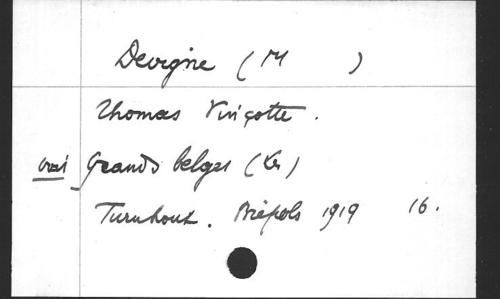 Devigne (M )
Thomas Vinçotte.
Grands belges (Les)
Turnhout. Brépols 1919 16.